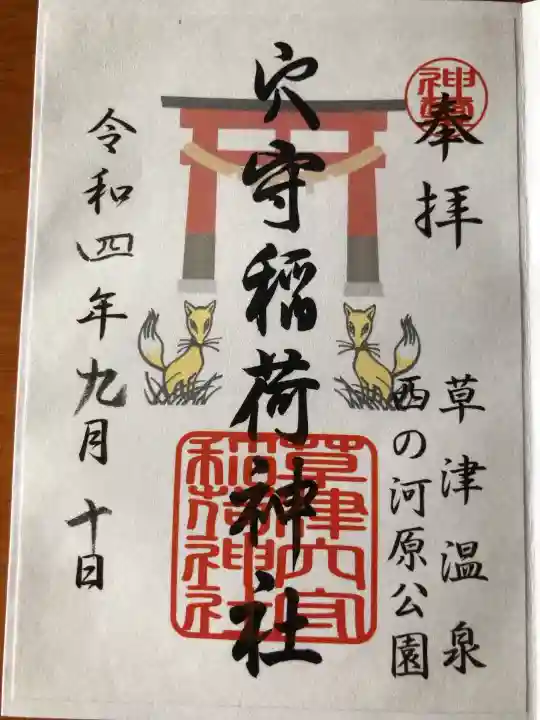 神璽
奉拝
草津温泉
西の河原公園
穴守稲荷神社
草津穴守
稲荷神社
令和四年九月十日